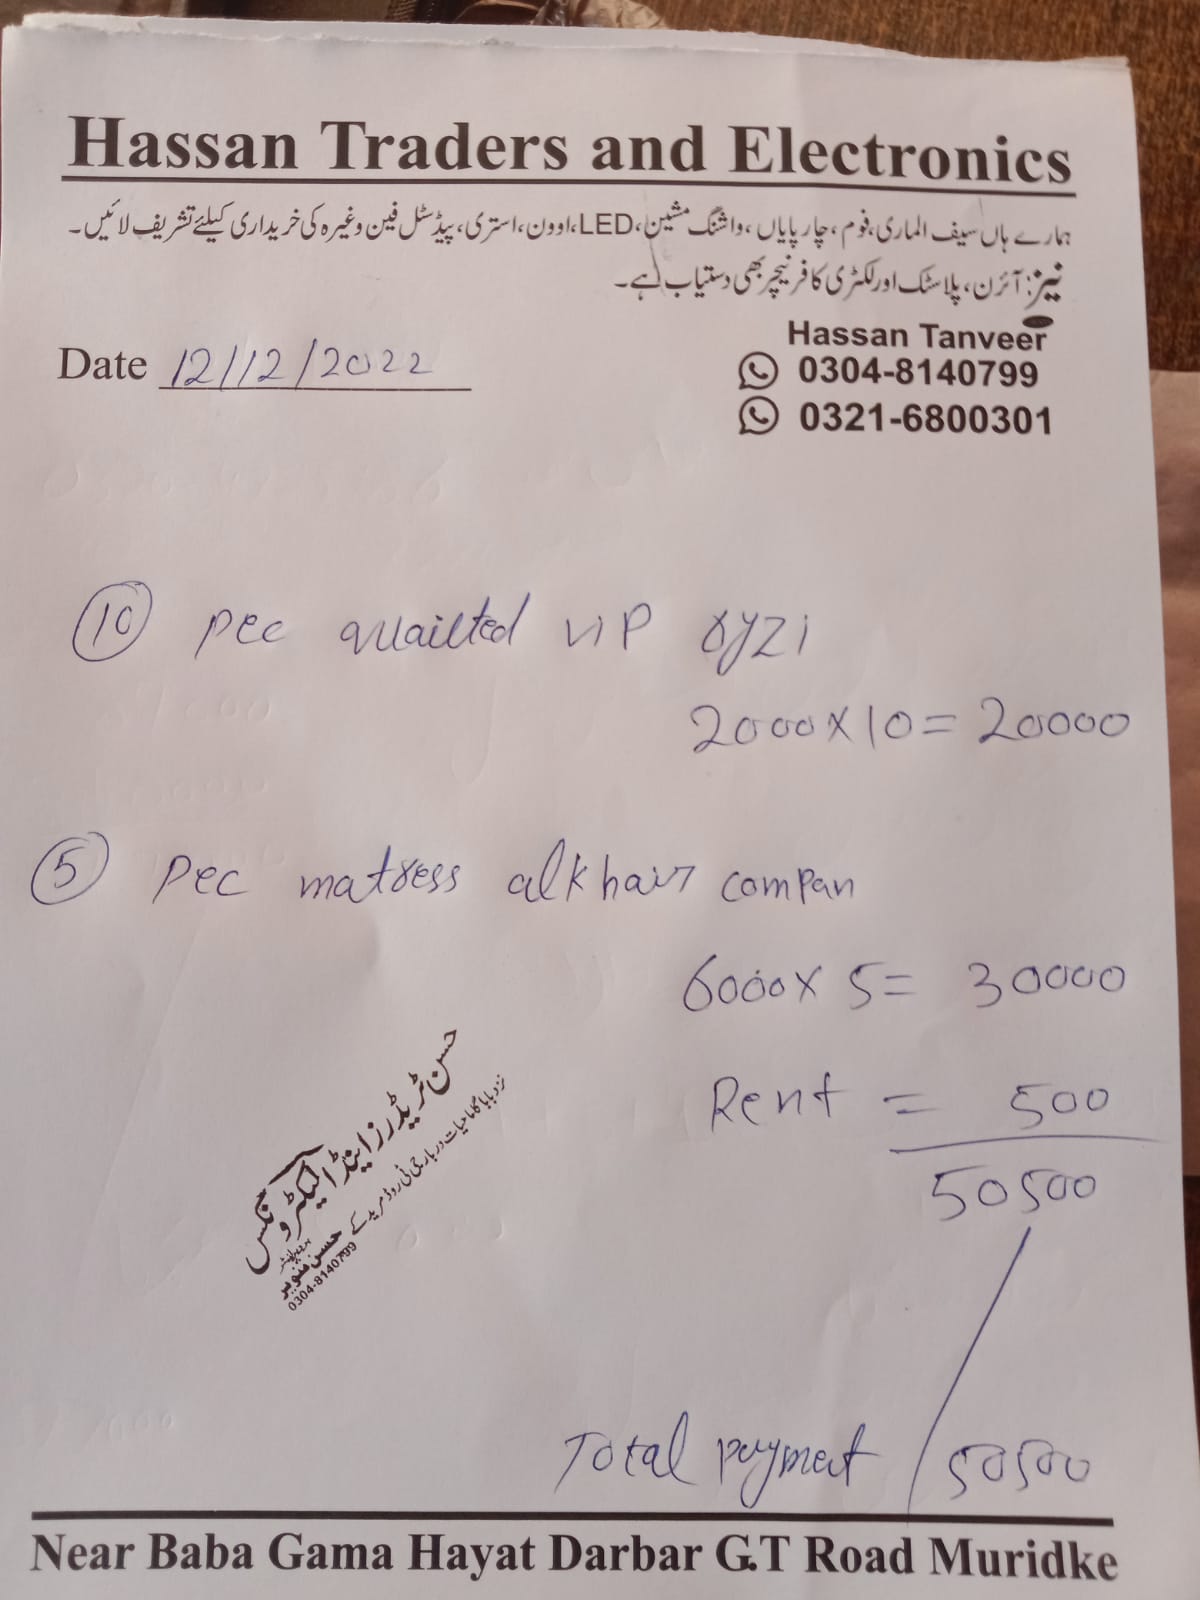 Hassan Traders and Electronics
ہمارے ہاں سیف الماری، فوم، چارپایاں، واشنگ مشین، LED، اوون، استری، پیڈسٹل فین وغیرہ کی خریداری کیلئے تشریف لائیں۔
نیز: آئرن، پلاسٹک اور لکڑی کا فرنیچر بھی دستیاب ہے۔
Hassan Tanveer
Date 12/12/2022
0304-8140799
0321-6800301
10 pec quailted viP ryzi
2000 x 10 = 20000
5 pec matress alkhair compan
6000 x 5 = 30000
Rent = 500
50500
حسن ٹریڈرز اینڈ الیکٹرونکس
نزد بابا گاما حیات دربار جی ٹی روڈ مریدکے
پروپرائٹر
حسن تنویر
0304-8140799
Total payment / 50500
Near Baba Gama Hayat Darbar G.T Road Muridke